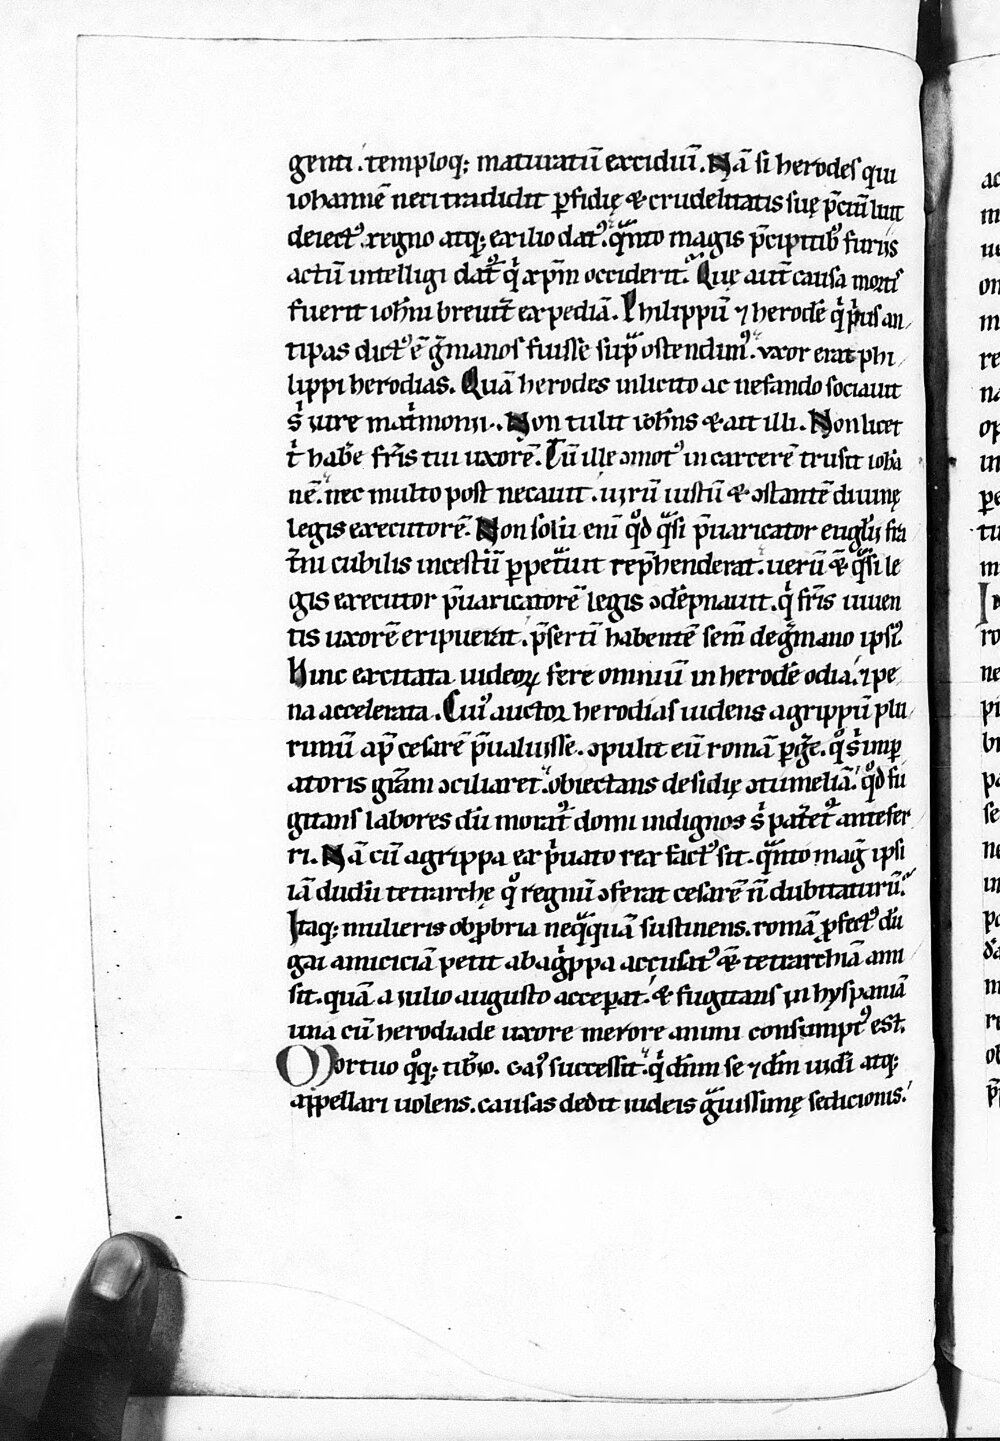 genti . temploq; maturatū excidiū. Nā si herodes qui
iohannē neci tradidit ꝑfidię & crudelitatis suę p̄ciū luit
deiectꝰ regno atq; exilio datꝰ. qͣnto magis p̄cipitibꝰ furiis
actū intelligi dat̄ qͥ xp̄m occiderit. Quę aut̄ causa mortis
fuerit ioh̄ni breuit̄ expediā. Philippū ⁊ herodē qͥ pͥus an
tipas dictꝰ ē ḡmanos fuisse sup̄ ostendimꝰ. vxor erat phi
lippi herodias. Quā herodes inlicito ac nefando sociauit
sͥ iure mat̄monii. Non tulit ioh̄ns & ait illi. Non licet
tͥ habēe fr̄is tui uxorē. Tū ille ɔmotꝰ in carcerē trusit ioha
nē. nec multo post necauit. uirū iustū & ɔstantē diuinę
legis executorē. Non solū eni qͦd qͣsi p̄uaricator eugłij fra
t̄ni cubilis incestū ꝑpetͣuit rep̄henderat. uerū & qͣsi le
gis executor p̄uaricatorē legis ɔdēpnauit. qͥ fr̄is uiuen
tis uxorē eripuerat. p̄sertī habentē sem̄ de ḡmano ipsiꝰ.
Hinc excitata iudeoꝝ fere omniū in herodē odia. ⁊ pe
na accelerata. Cuiꝰ auctor herodias uidens agrippū plu
rimū ap̄ cesarē p̄ualuisse. ɔpulit eū romā ꝑḡe. qͦ sͥ imꝑ
atoris gr̄am ɔciliaret. obiectans desidię ɔtumeliā. qͦd fu
gitans labores dū morat̄ domi indignos sͥ patet̄ antefer
ri. Nā cū agrippa ex pͥuato rex factꝰ sit. qͣnto mag̃ ipsi
iā dudū tetrarchę qͦ regnū ɔferat cesarē n̄ dubitaturū.
Itaq; mulieris obꝓbria neqͣquā sustinens. romā ꝓfectꝰ dū
gai amiciciā petit ab agͥppa accusatꝰ & tetrarchiā ami
sit. quā a iulio augusto acceperat. & fugitans in hyspaniā
una cū herodiade uxore merore animi consumptꝰ est.
Mortuo qͦq; tib̄io. Gaiꝰ successit. qͥ dn̄m se ⁊ dm̄ uidi atq;
appellari uolens. causas dedit iudeis gͣuissimę sedicionis.